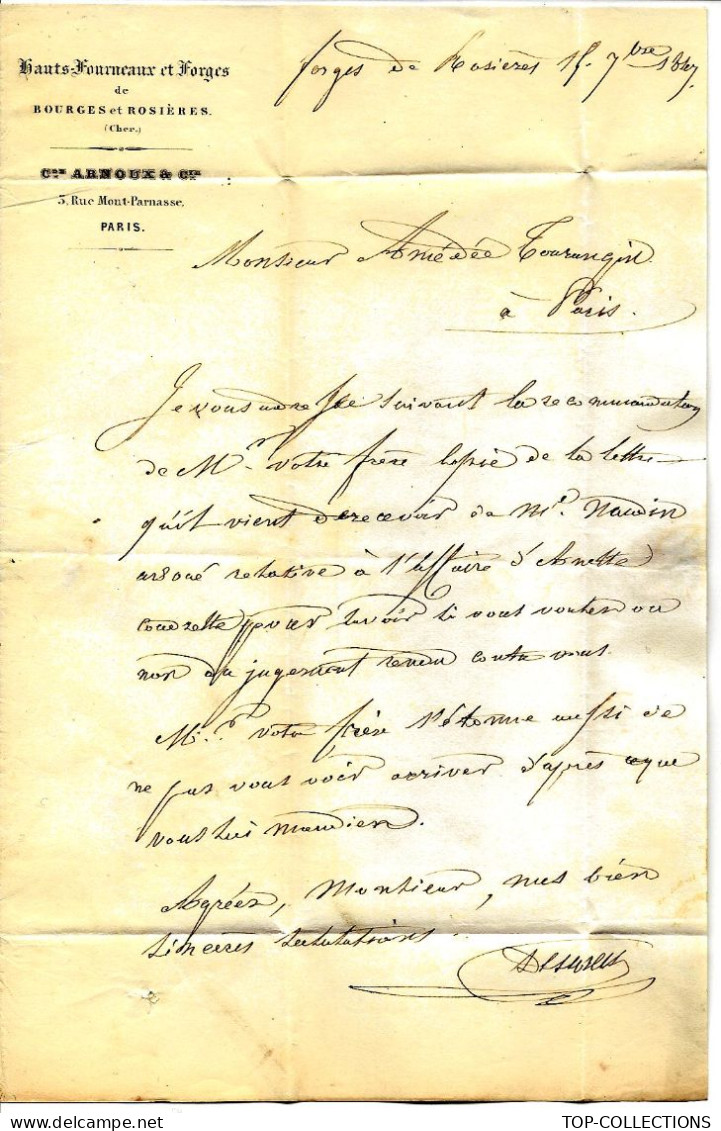 Hauts-Fourneaux et Forges
de
BOURGES et ROSIÈRES.
(Cher.)
Ces ARNOUX & Cie
3, Rue Mont-Parnasse,
PARIS.
forges de Rosières 15 7bre 1847
Monsieur Amédée Tourangin
à Paris.
Je vous adresse suivant la recommandation
de Mr votre frère copie de la lettre
qu'il vient de recevoir de Me
avoué relative à l'affaire d'Anette
pour savoir si vous voulez ou
non du jugement rendu contre vous.
Mr votre frère s'étonne aussi de
ne pas vous voir arriver d'après ce que
vous lui mandiez.
Agréez, Monsieur, mes bien
sincères salutations.
TOP-COLLECTIONS